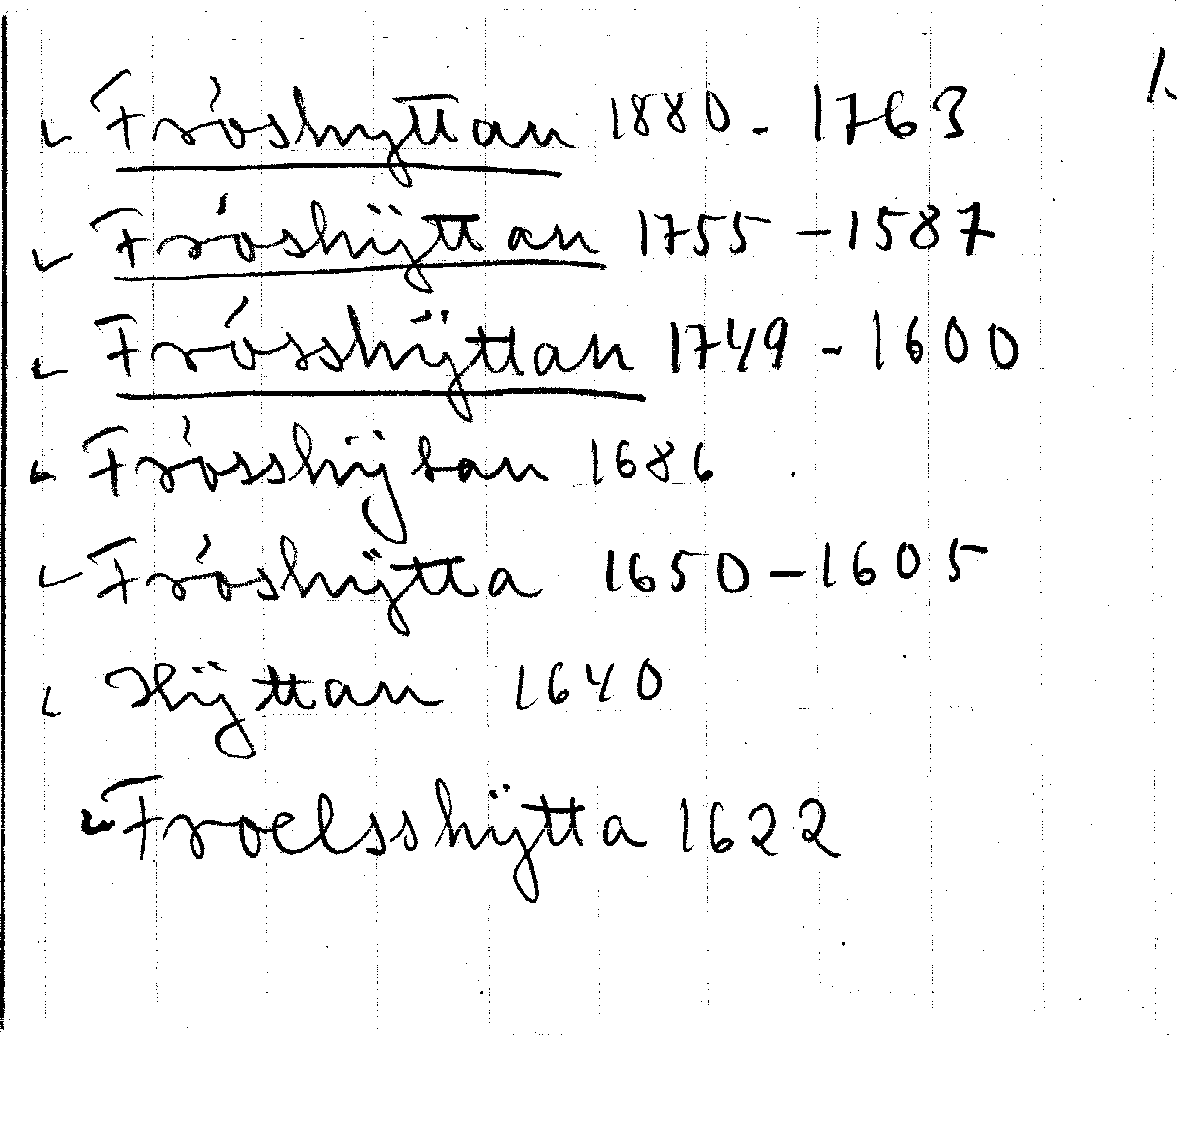 1.
Fröshyttan 1880 - 1763
Fröshÿttan 1755 - 1587
Frösshÿttan 1749 - 1600
Frösshÿtan 1686
Fröshÿtta 1650 - 1605
Hÿttan 1640
Froelsshÿtta 1622